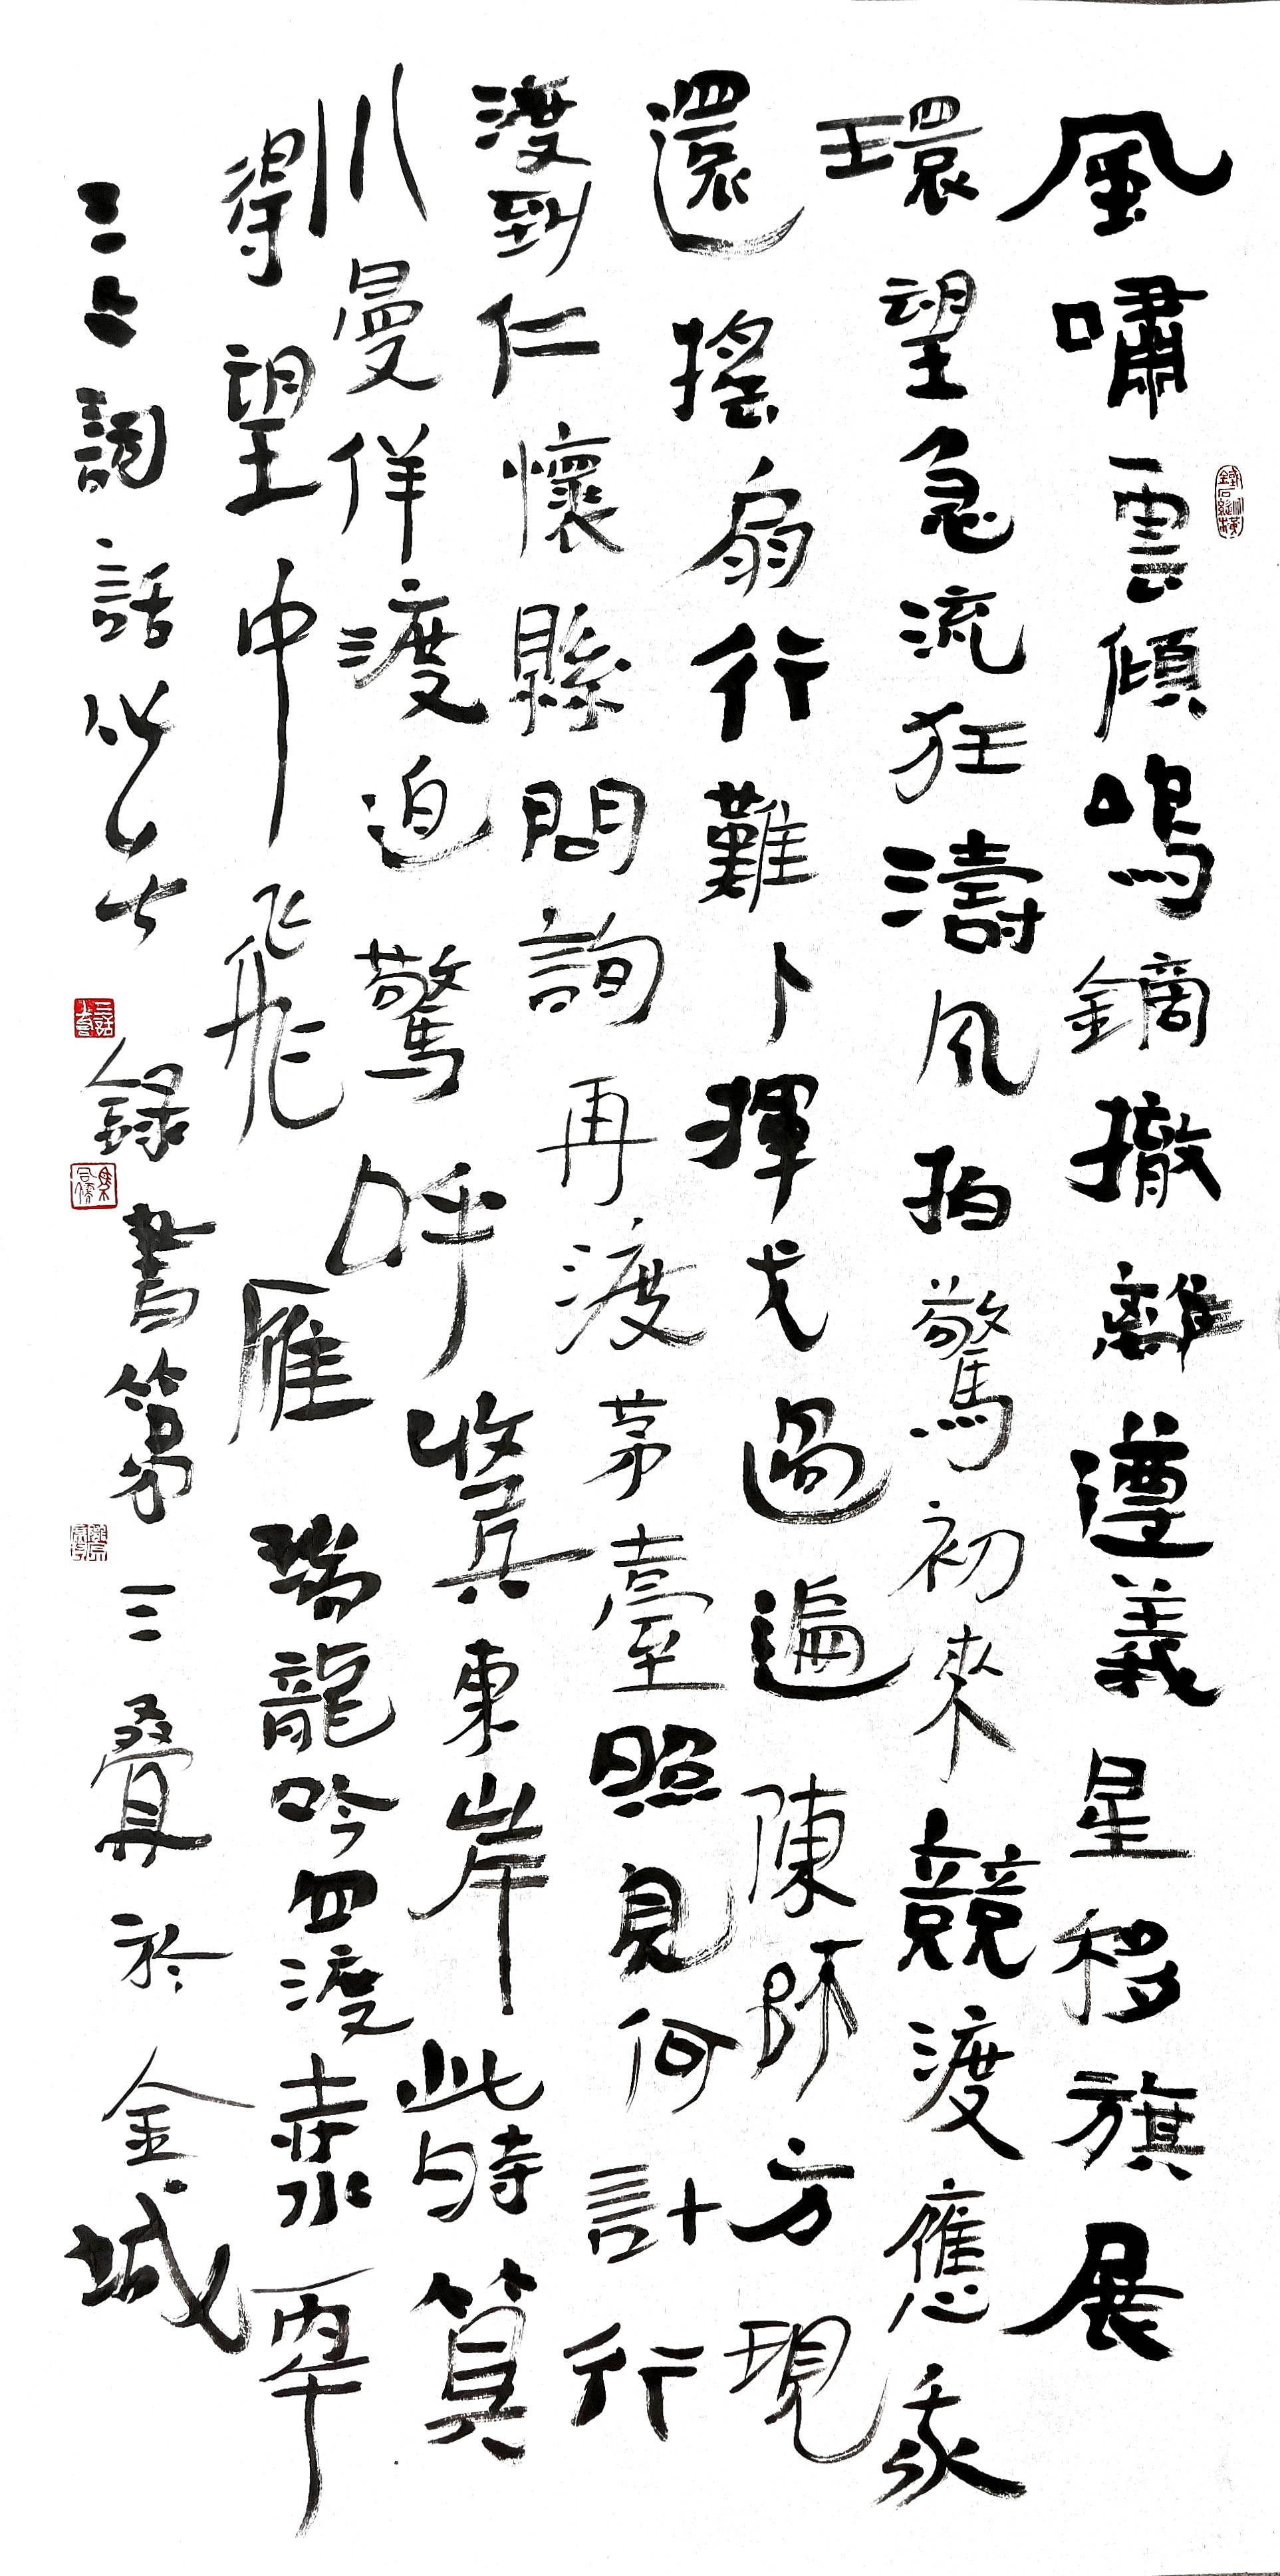 風嘯雲傾鳴鏑撤離遵義星移旗展
環望急流狂濤風拍驚初來競渡應永
還搖扇行難卜揮戈過遍陳師方現
渡到仁懷縣問詢再渡茅臺照見何計行
川曼佯渡迫驚呼收兵東岸此時算
得望中飛雁瑞龍吟四渡赤水丙午
詞話
錄書第三疊於金城